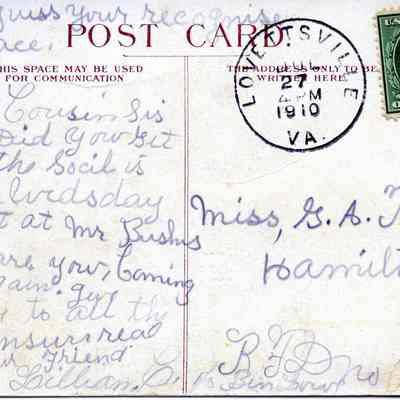 guess your recognise
POST CARD
THIS SPACE MAY BE USED
FOR COMMUNICATION
THE ADDRESS ONLY TO BE
WRITTEN HERE.
LOVETTSVILLE
27
4 PM
1910
VA.
Cousin Sis
Did you get
the Socil is
Wedsday
at Mr Bushs
are your, Coming
to all th
Friend
Lillian. C.
Miss, G. A.
Hamilt
R F D no